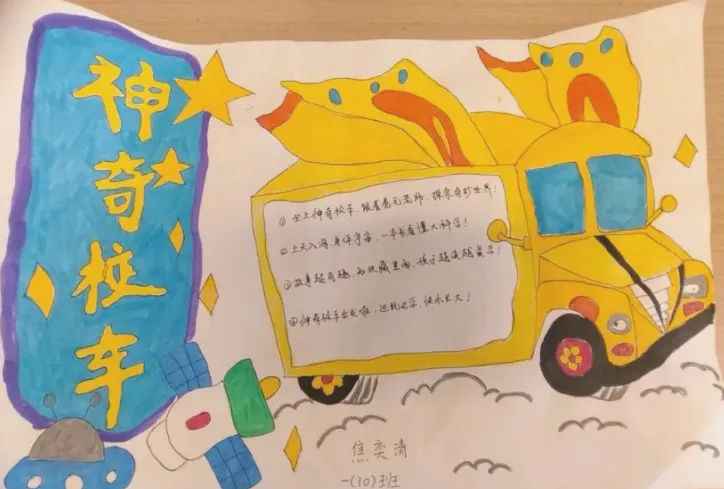 神奇校车
①坐上神奇校车,跟着卷毛老师,探索奇妙世界!
②上天入海,身体宇宙,一本书看懂大科学!
③故事超有趣,知识藏里面,孩子越读越爱学!
④神奇校车出发啦,边玩边学,快乐长大!
焦奕清
一(10)班